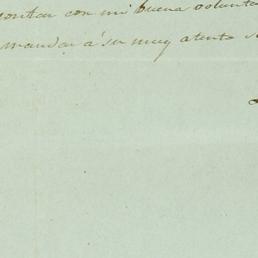 contar con mi buena volunta
mandar á su muy atento s